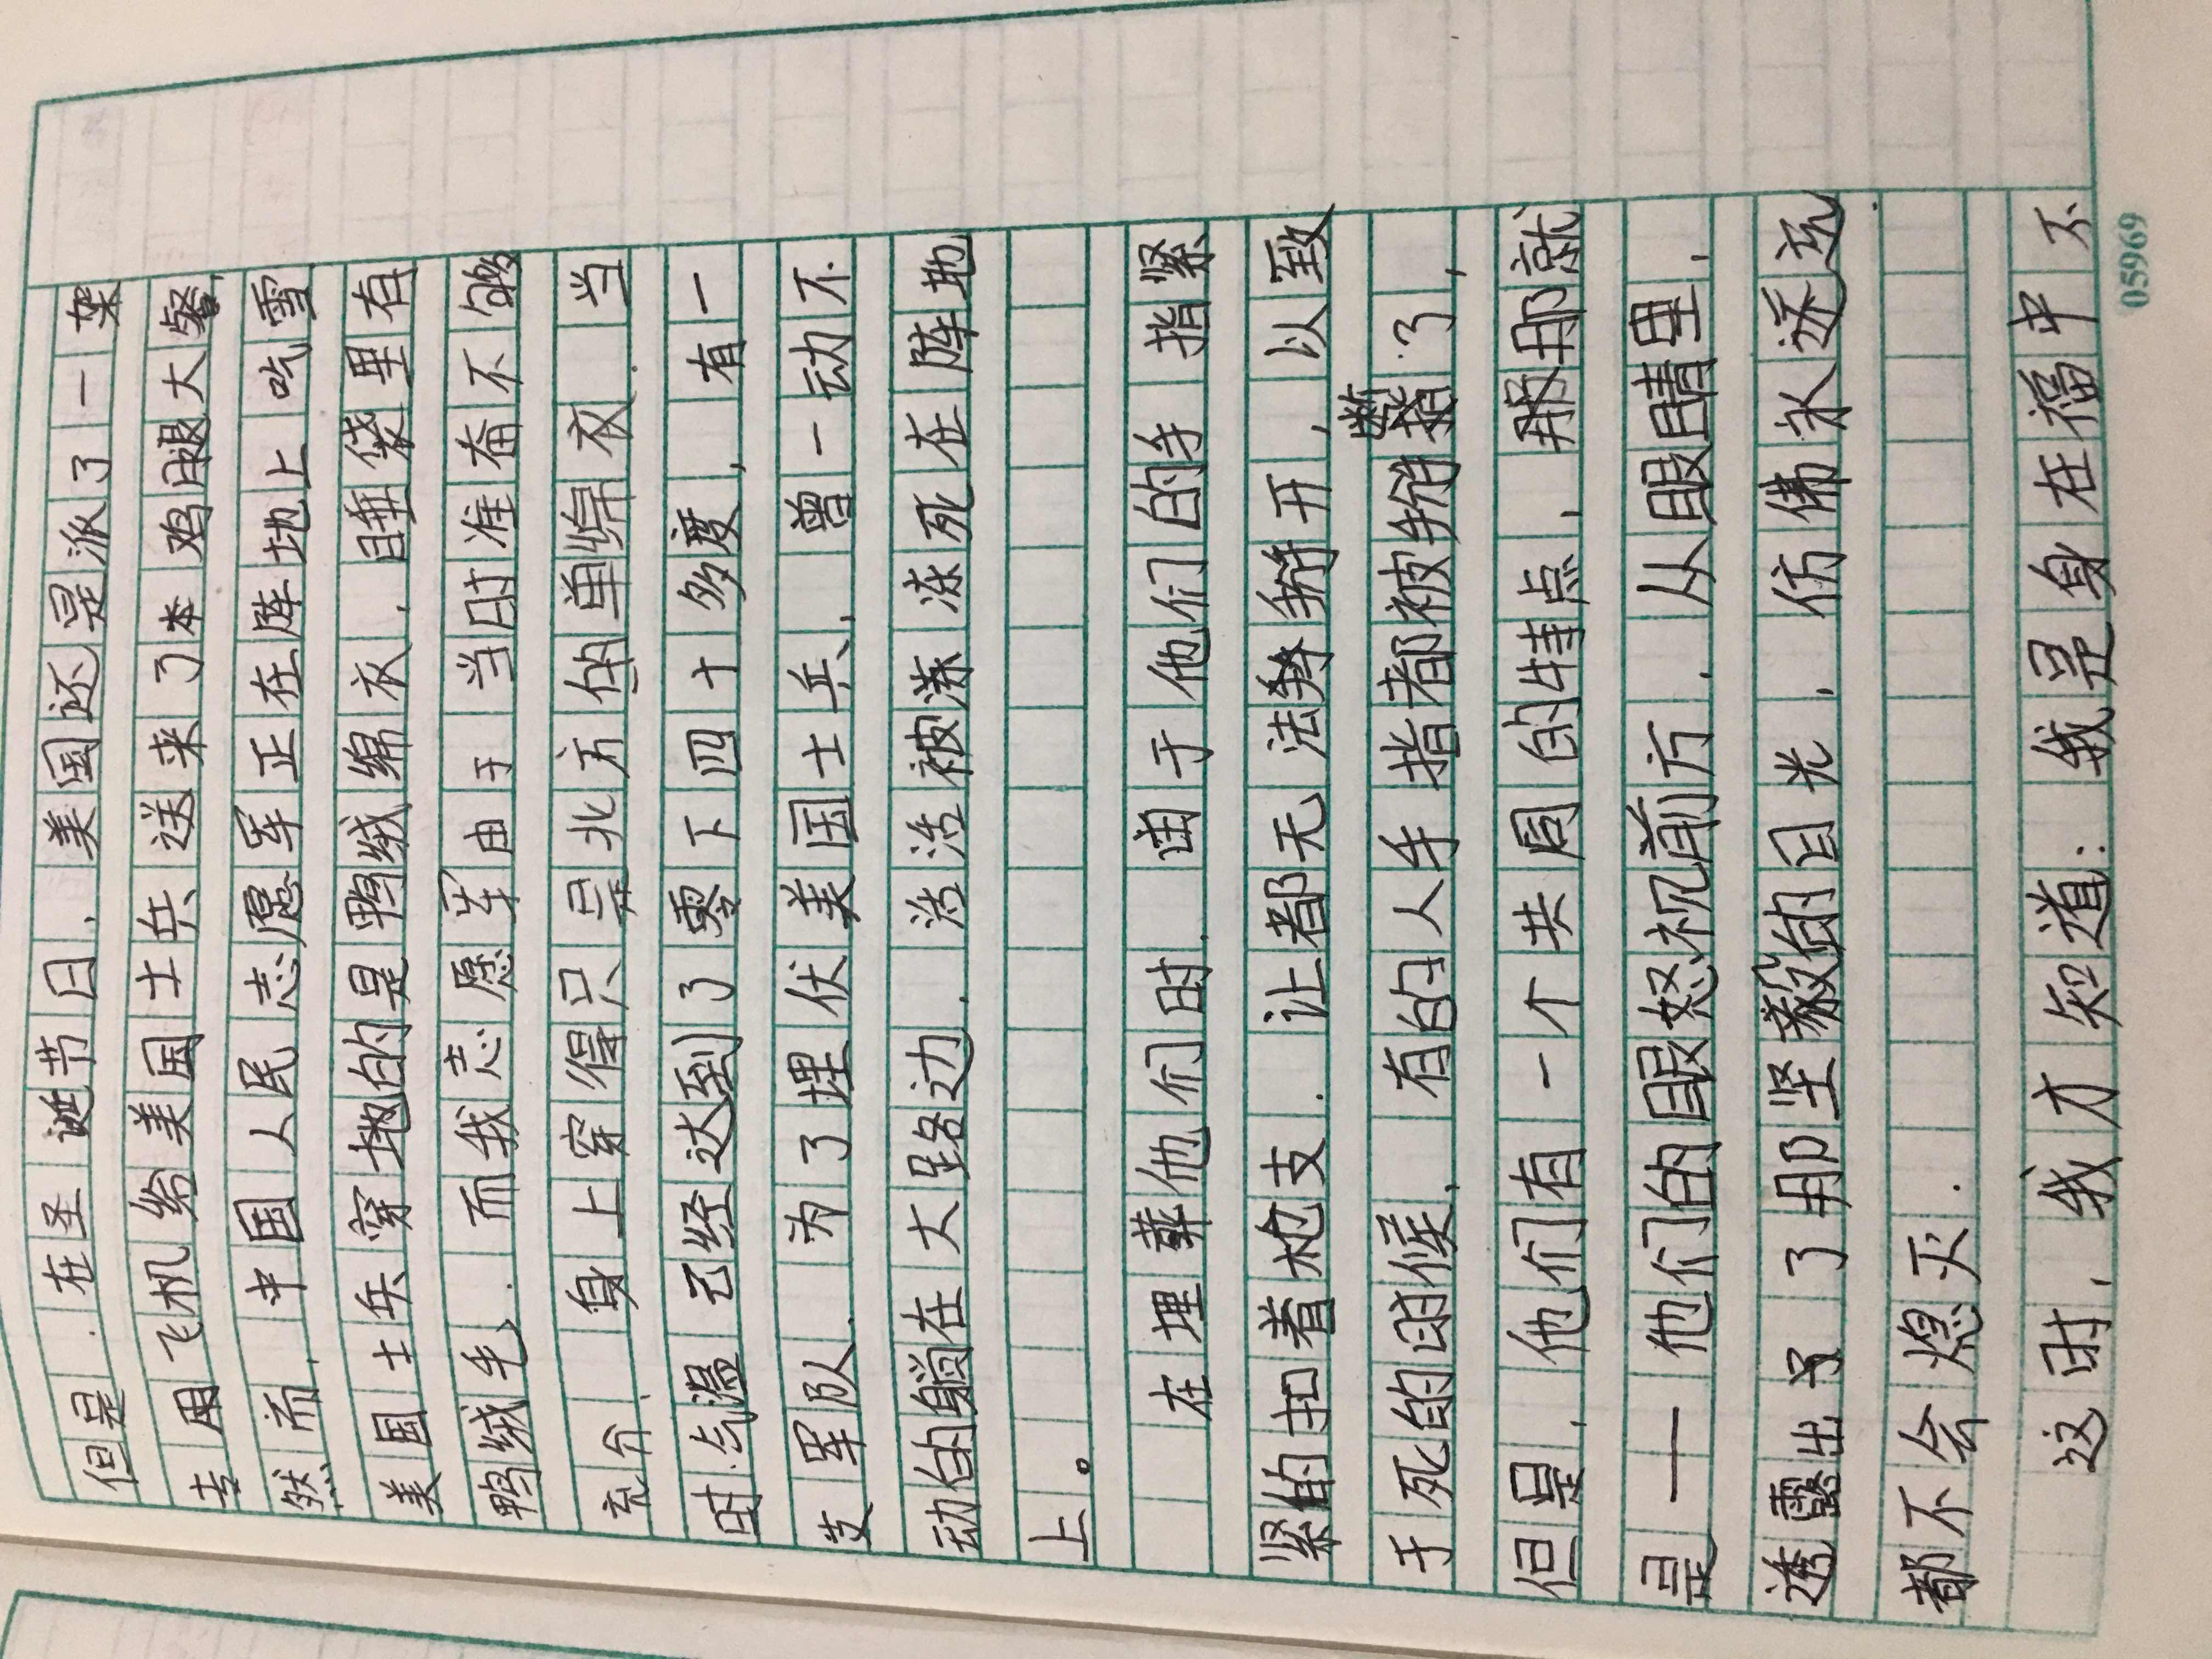 但是，在圣诞节日，美国还是派了一架
去用飞机给美国士兵送来了本鸡腿大餐，
然而，中国人民志愿军正在阵地上吃雪
美国士兵穿地的是鸭绒绵衣，睡袋里有
鸭绒毛，而我志愿军由于当时准备不够
充分，身上穿得只是北方的单绵衣．当
时气温已经达到了零下四十多度，有一
支军队，为了埋伏美国士兵，曾一动不
动的躺在大路边，活活被冻冻死在阵地
上。
在埋葬他们时，由于他们的手指紧
紧的扣着枪支，让都无法掰掰开，以致
于死的时候，有的人手指都被掰断了，
但是，他们有一个共同的特点，那那就
是——他们的眼怒视前方，从眼睛里，
透露出了那坚毅的目光，仿佛永远远
都不会熄灭．
这时，我才知道：我是身在福中不
05969